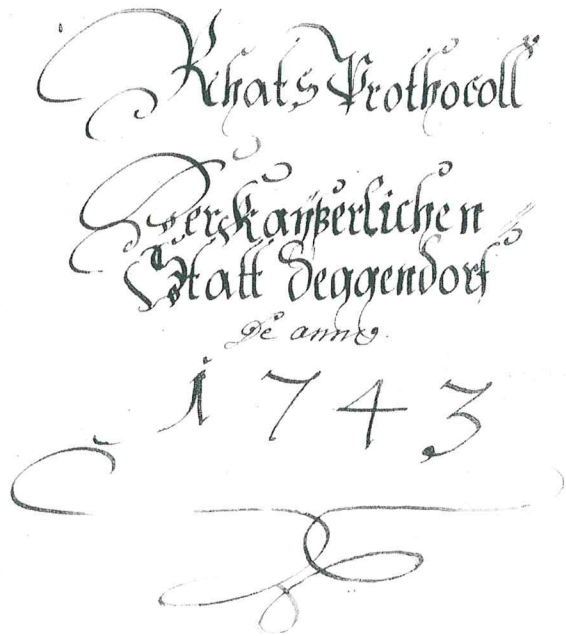 Rhats Prothocoll
Der kayßerlichen
Statt Deggendorf
De anno
1743